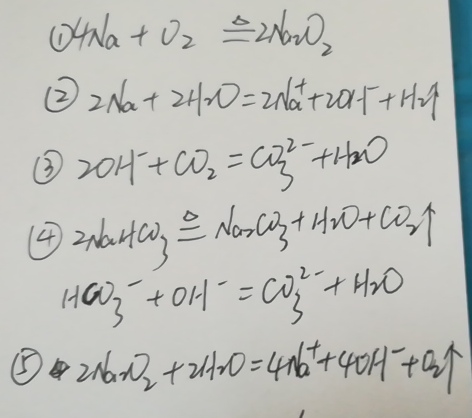 ①4Na + O₂ ≜ 2Na₂O₂
② 2Na + 2H₂O = 2Na⁺ + 2OH⁻ + H₂↑
③ 2OH⁻ + CO₂ = CO₃²⁻ + H₂O
④ 2NaHCO₃ ≜ Na₂CO₃ + H₂O + CO₂↑
HCO₃⁻ + OH⁻ = CO₃²⁻ + H₂O
⑤ 2Na₂O₂ + 2H₂O = 4Na⁺ + 4OH⁻ + O₂↑